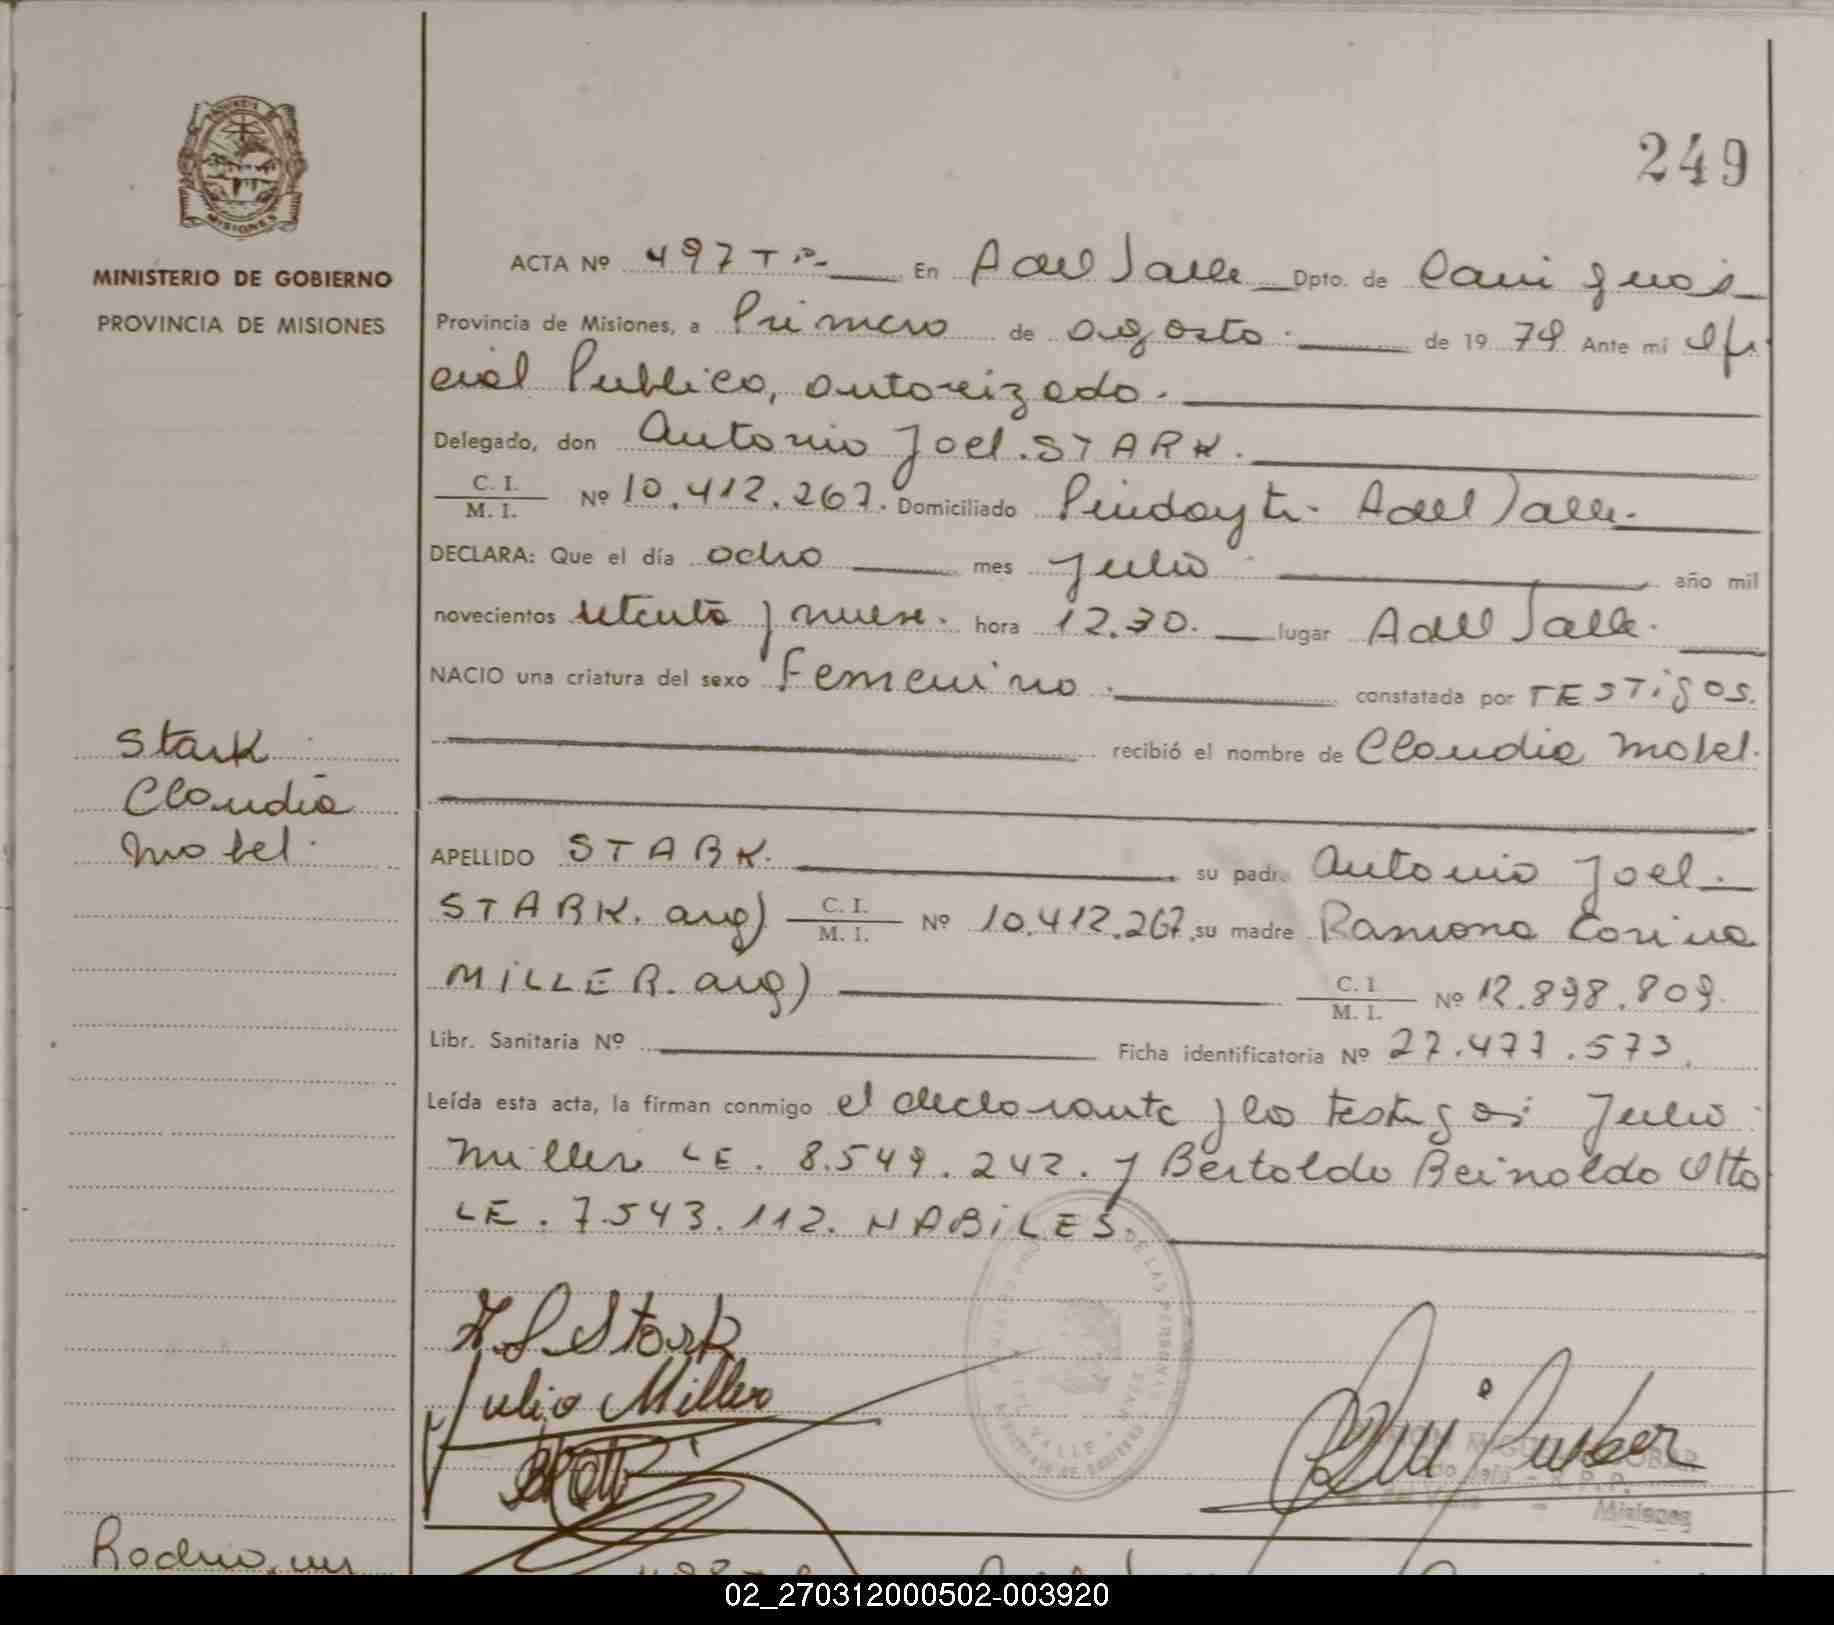 249
MINISTERIO DE GOBIERNO
PROVINCIA DE MISIONES
MISIONES
ACTA Nº 497 Tº En A del Valle Dpto. de Cainguás
Provincia de Misiones, a Primero de agosto. de 1979 Ante mi Ofi
cial Publico, autorizado.
Delegado, don Antonio Joel. STARK.
C. I. / M. I. Nº 10.412.267. Domiciliado Pindayti. A del Valle.
DECLARA: Que el día ocho mes Julio año mil
novecientos setenta y nueve. hora 12.30. lugar A del Valle.
NACIO una criatura del sexo Femenino. constatada por TESTigOS.
recibió el nombre de Claudia Mabel.
Stark
Claudia
Mabel.
APELLIDO STARK. su padre Antonio Joel.
STARK. arg) C. I. / M. I. Nº 10.412.267. su madre Ramona Corina
MiLLER. arg) C. I / M. I. Nº 12.898.809.
Libr. Sanitaria Nº Ficha identificatoria Nº 27.477.573.
Leída esta acta, la firman conmigo el declarante y los testigos: Julio
Miller LE. 8.549.242. y Bertoldo Reinoldo Otto
LE. 7.543.112. HABiLES.
Stark
Julio Miller
DE LAS PERSONAS
VALLE
Misiones
02_270312000502-003920